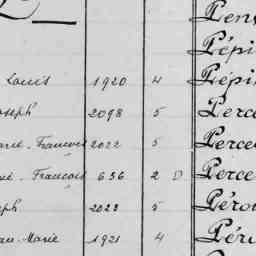 Pen
Pépi
Louis 1920 4 Pépi
oseph 2098 5 Perce
arie-François 2022 5 Perce
François 656 2 D Perce
ph 2023 5 Péro
an-Marie 1921 4 Péru